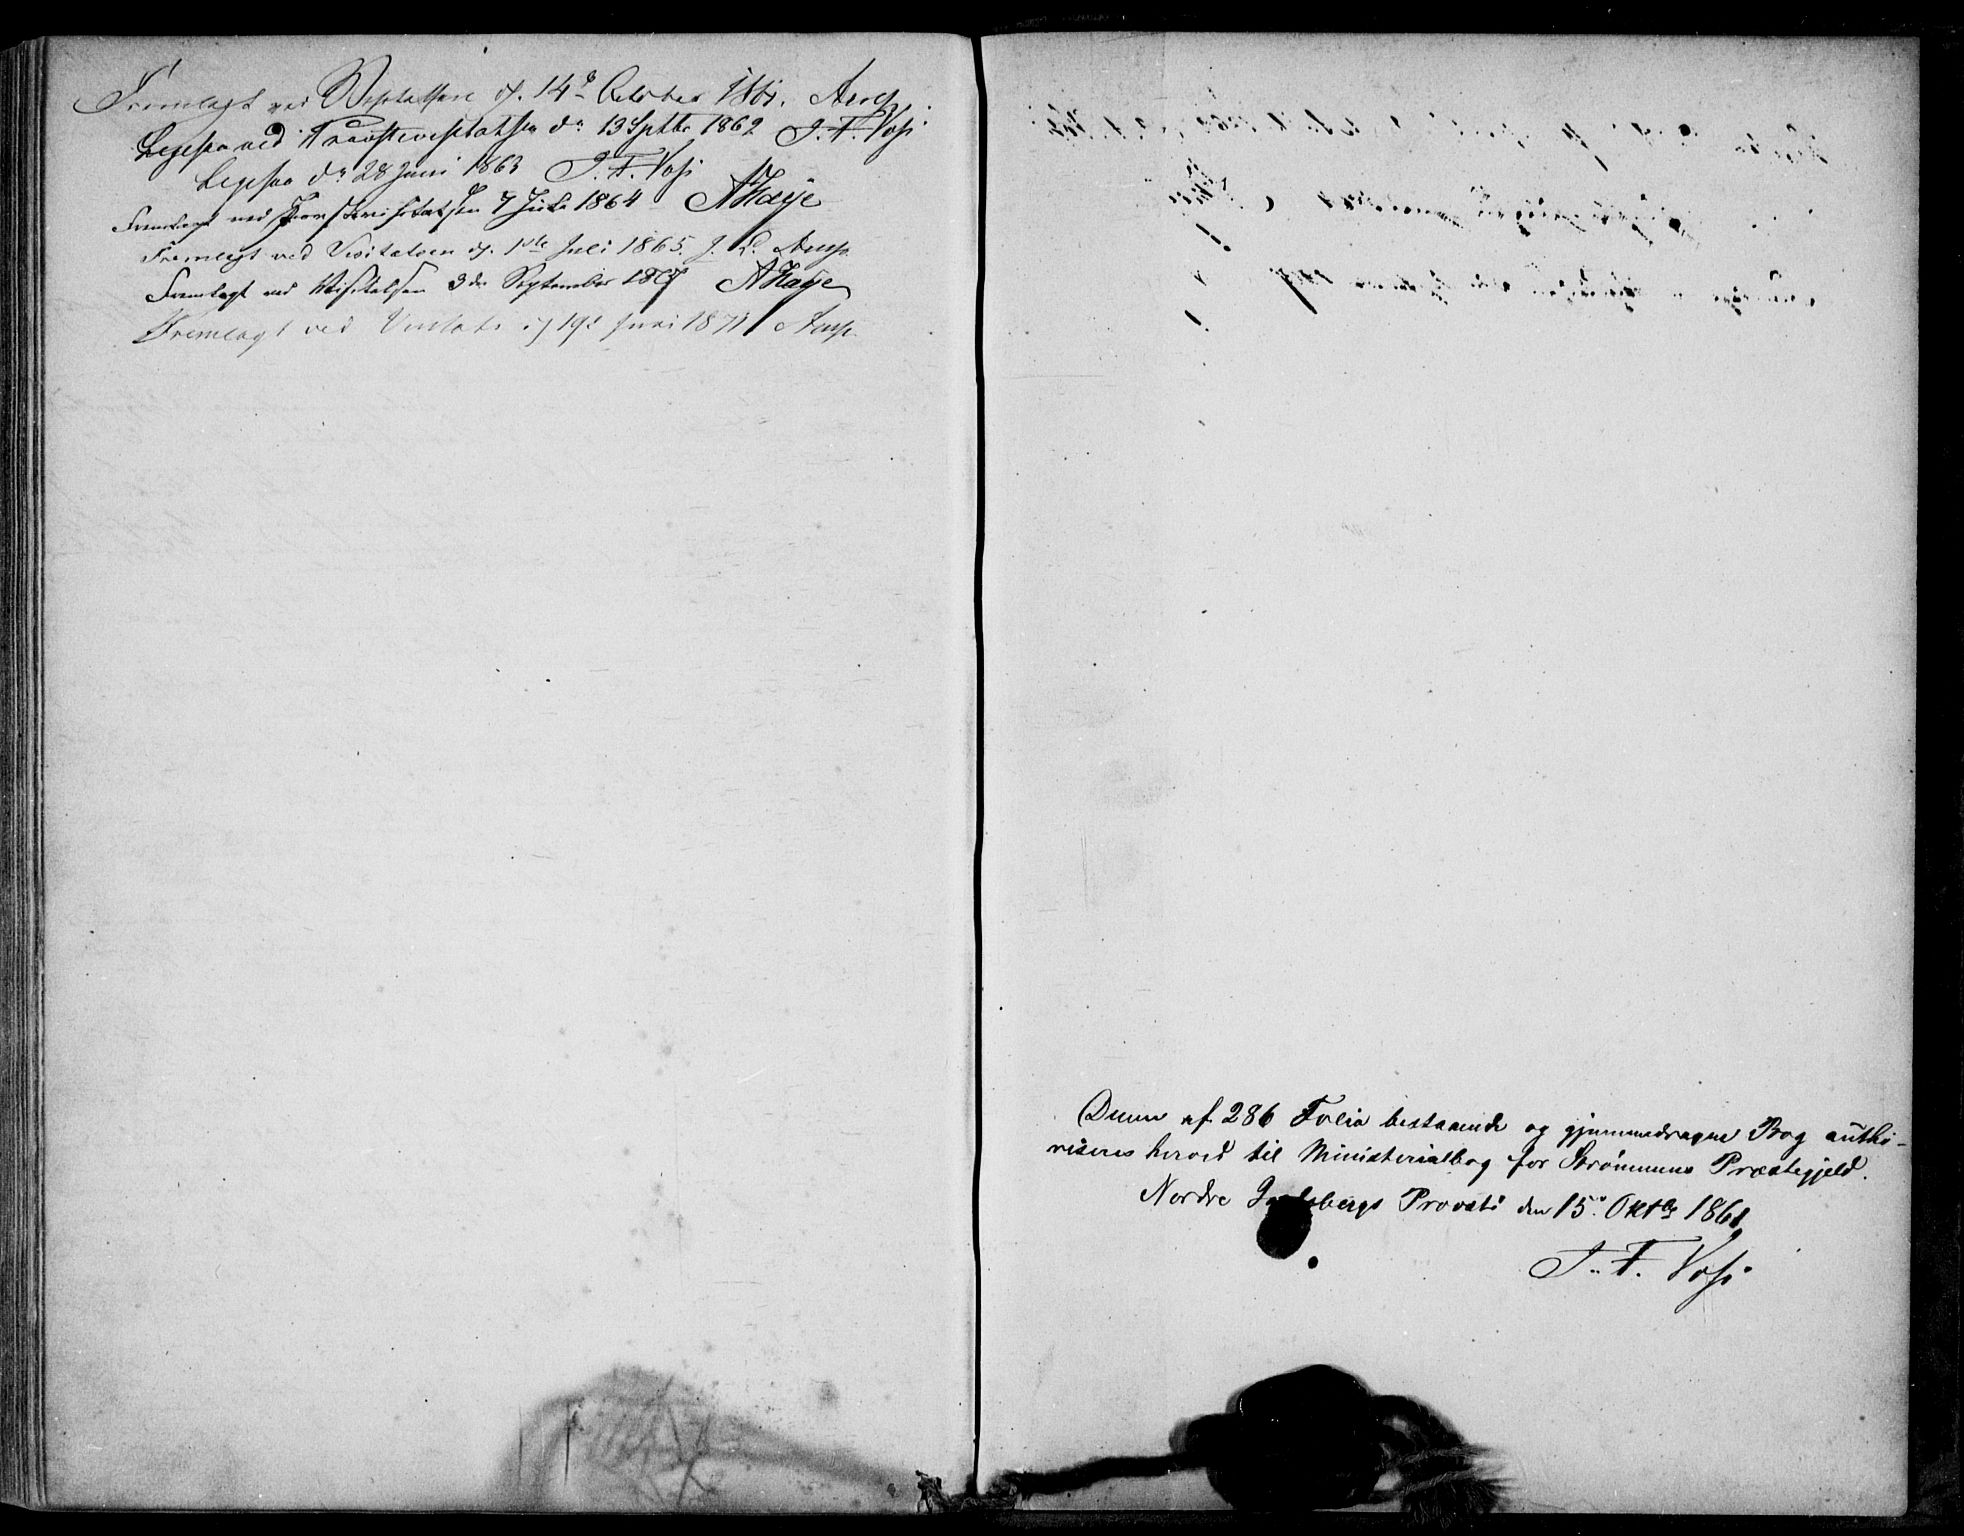 Fremlagt ved Visitatsen d. 14d October 1861. Arup.
Legesaa ved Provstevisitatsen dn 13 Sptbr 1862 J. F. Voss
Legesaa dn 28 Juni 1863 J. F. Voss
Fremlagt ved Provstevisitatsen 7 Juli 1864 AKaye
Fremlagt ved Visitatsen d. 1ste Juli 1865. J. L. Arup.
Fremlagt ved Visitatsen 3die September 1867 AKaye
Fremlagt ved Visitats d 19d Juni 1871 Arup.
Denne af 286 Folia bestaaende og gjennemdragne Bog autho-
riseres herved til Ministerialbog for Strømmens Præstegjeld.
Nordre Jarlsbergs Provsti den 15de Oktbr 1861
J. F. Voss